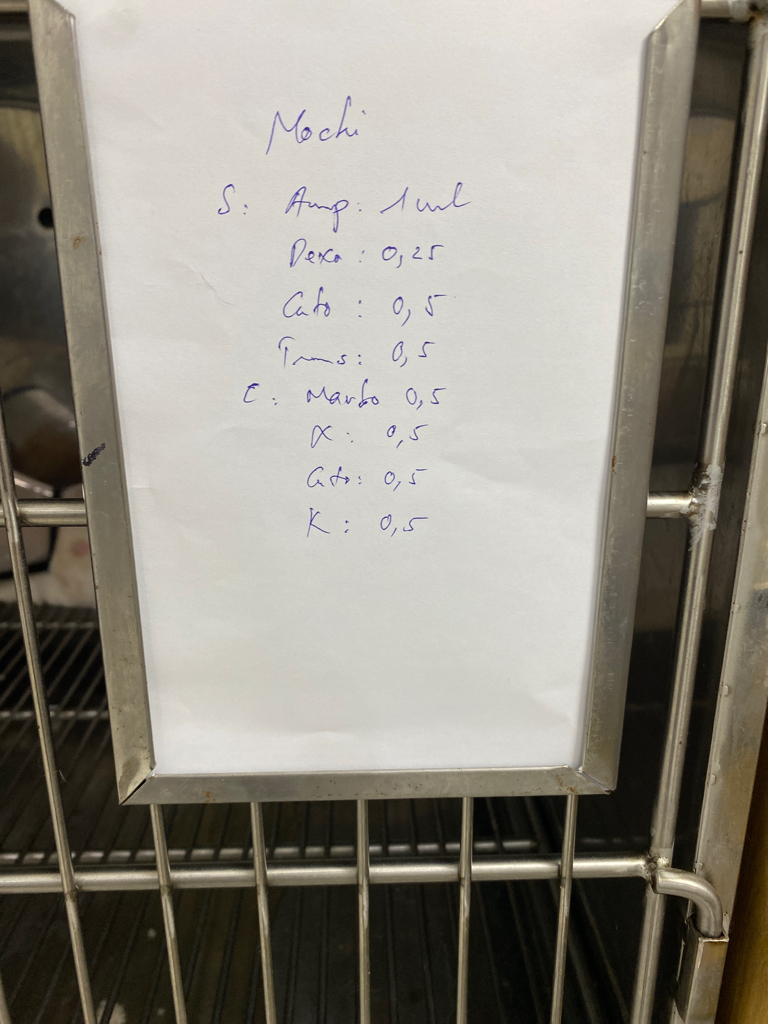 Mochi
S: Amp: 1 ml
Dexa: 0,25
Cato: 0,5
Trans: 0,5
C: Marbo 0,5
X: 0,5
Cato: 0,5
K: 0,5